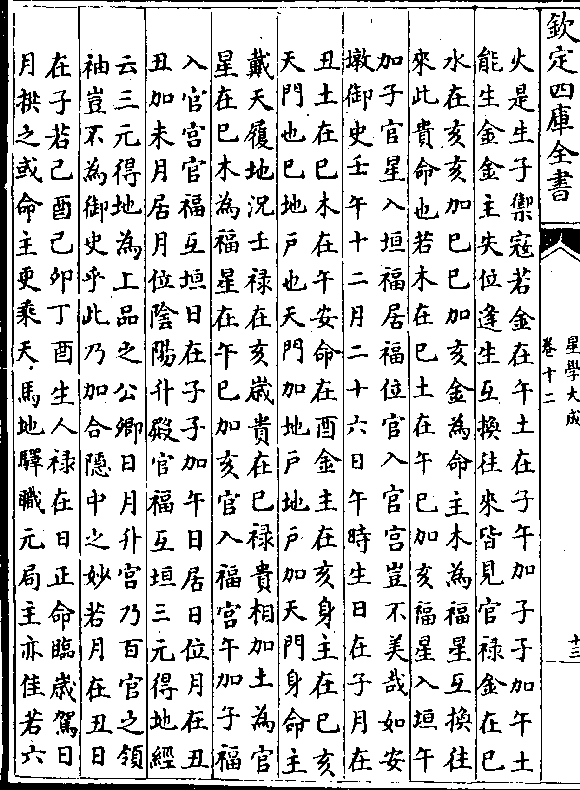 欽定四庫全書
星學大成
卷十二
十三
火是生子禦寇若金在午土在子午加子子加午土
能生金金主失位逢生互換往來皆見官祿金在巳
水在亥亥加巳巳加亥金為命主木為福星互換往
來此貴命也若木在巳土在午巳加亥福星入垣午
加子官星入垣福居福位官入官宮豈不美哉如安
墩御史壬午十二月二十六日午時生日在子月在
丑土在巳木在午安命在酉金主在亥身主在巳亥
天門也巳地戶也天門加地戶地戶加天門身命主
戴天履地況壬祿在亥歲貴在巳祿貴相加土為官
星在巳木為福星在午巳加亥官入福宮午加子福
入官宮官福互垣日在子子加午日居日位月在丑
丑加未月居月位陰陽升殿官福互垣三元得地經
云三元得地為上品之公卿日月升宮乃百官之領
袖豈不為御史乎此乃加合隱中之妙若月在丑日
在子若己酉己卯丁酉生人祿在日正命臨歲駕日
月拱之或命主更乘天馬地驛職元局主亦佳若六